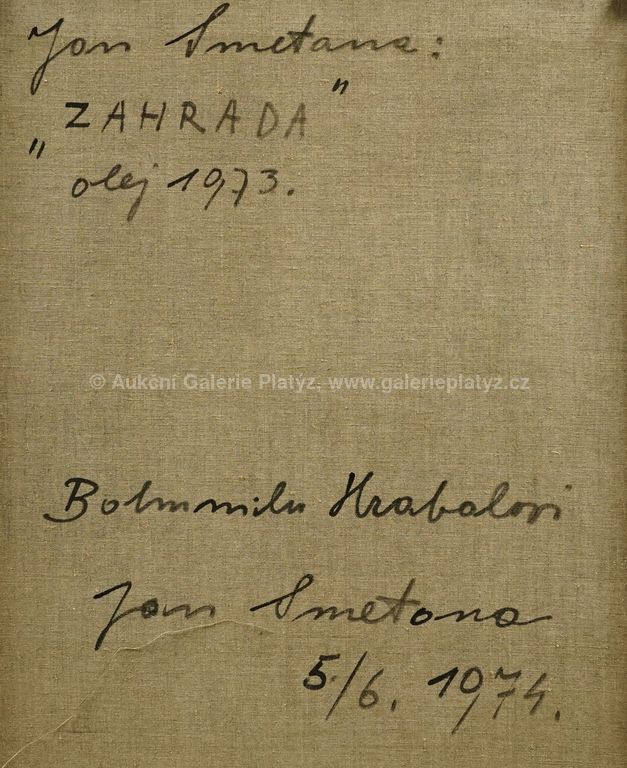 Jan Smetana:
„ZAHRADA"
olej 1973.
© Aukční Galerie Platýz, www.galerieplatyz.cz
Bohumilu Hrabalovi
Jan Smetana
5/6. 1974.